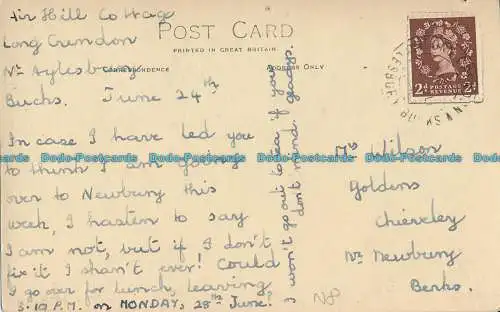 Air Hill Cottage
Long Crendon
Nr Aylesbury
Bucks. June 24th
POST CARD
PRINTED IN GREAT BRITAIN
CORRESPONDENCE
ADDRESS ONLY
In case I have led you
to think I am going
over to Newbury this
week, I hasten to say
I am not, but if I don't
fix it I shan't ever! Could
I go over for lunch, leaving
3.10 P.M. on MONDAY, 28th June?
I won't go out to tea if you
don't mind. Gladys.
Wilson
Goldens
Chieveley
Nr Newbury
Berks.
N8
2d POSTAGE REVENUE 2d
Dodo-Postcards Dodo-Postcards Dodo-Postcards Dodo-Postcards Dodo-Postcards